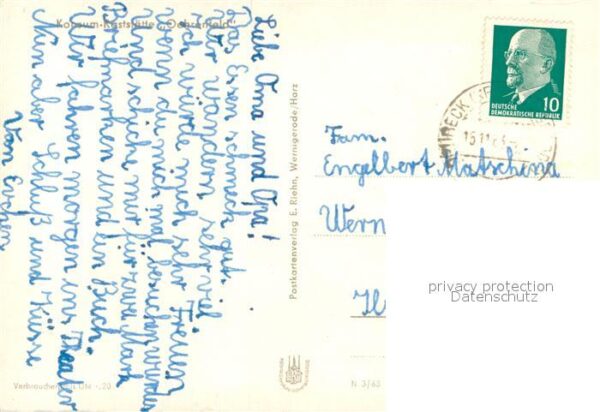 Konsum-Gaststätte „Dahrenfeld"
Liebe Oma und Opa!
Das Essen schmeckt gut.
Wir wandern sehr viel.
Ich würde mich sehr freuen
wenn du mich mal besuchen würdest
und schicke mir für zwei Mark
Briefmarken und ein Buch.
Wir fahren morgen ins Theater
Nun aber Schluß und Küsse
Von
Postkartenverlag E. Riehn, Wernigerode/Harz
DEUTSCHE
DEMOKRATISCHE REPUBLIK
10
Fam.
Engelbert Matschina
Wern
privacy protection
Datenschutz
Verbraucher
-,20
N 3/63